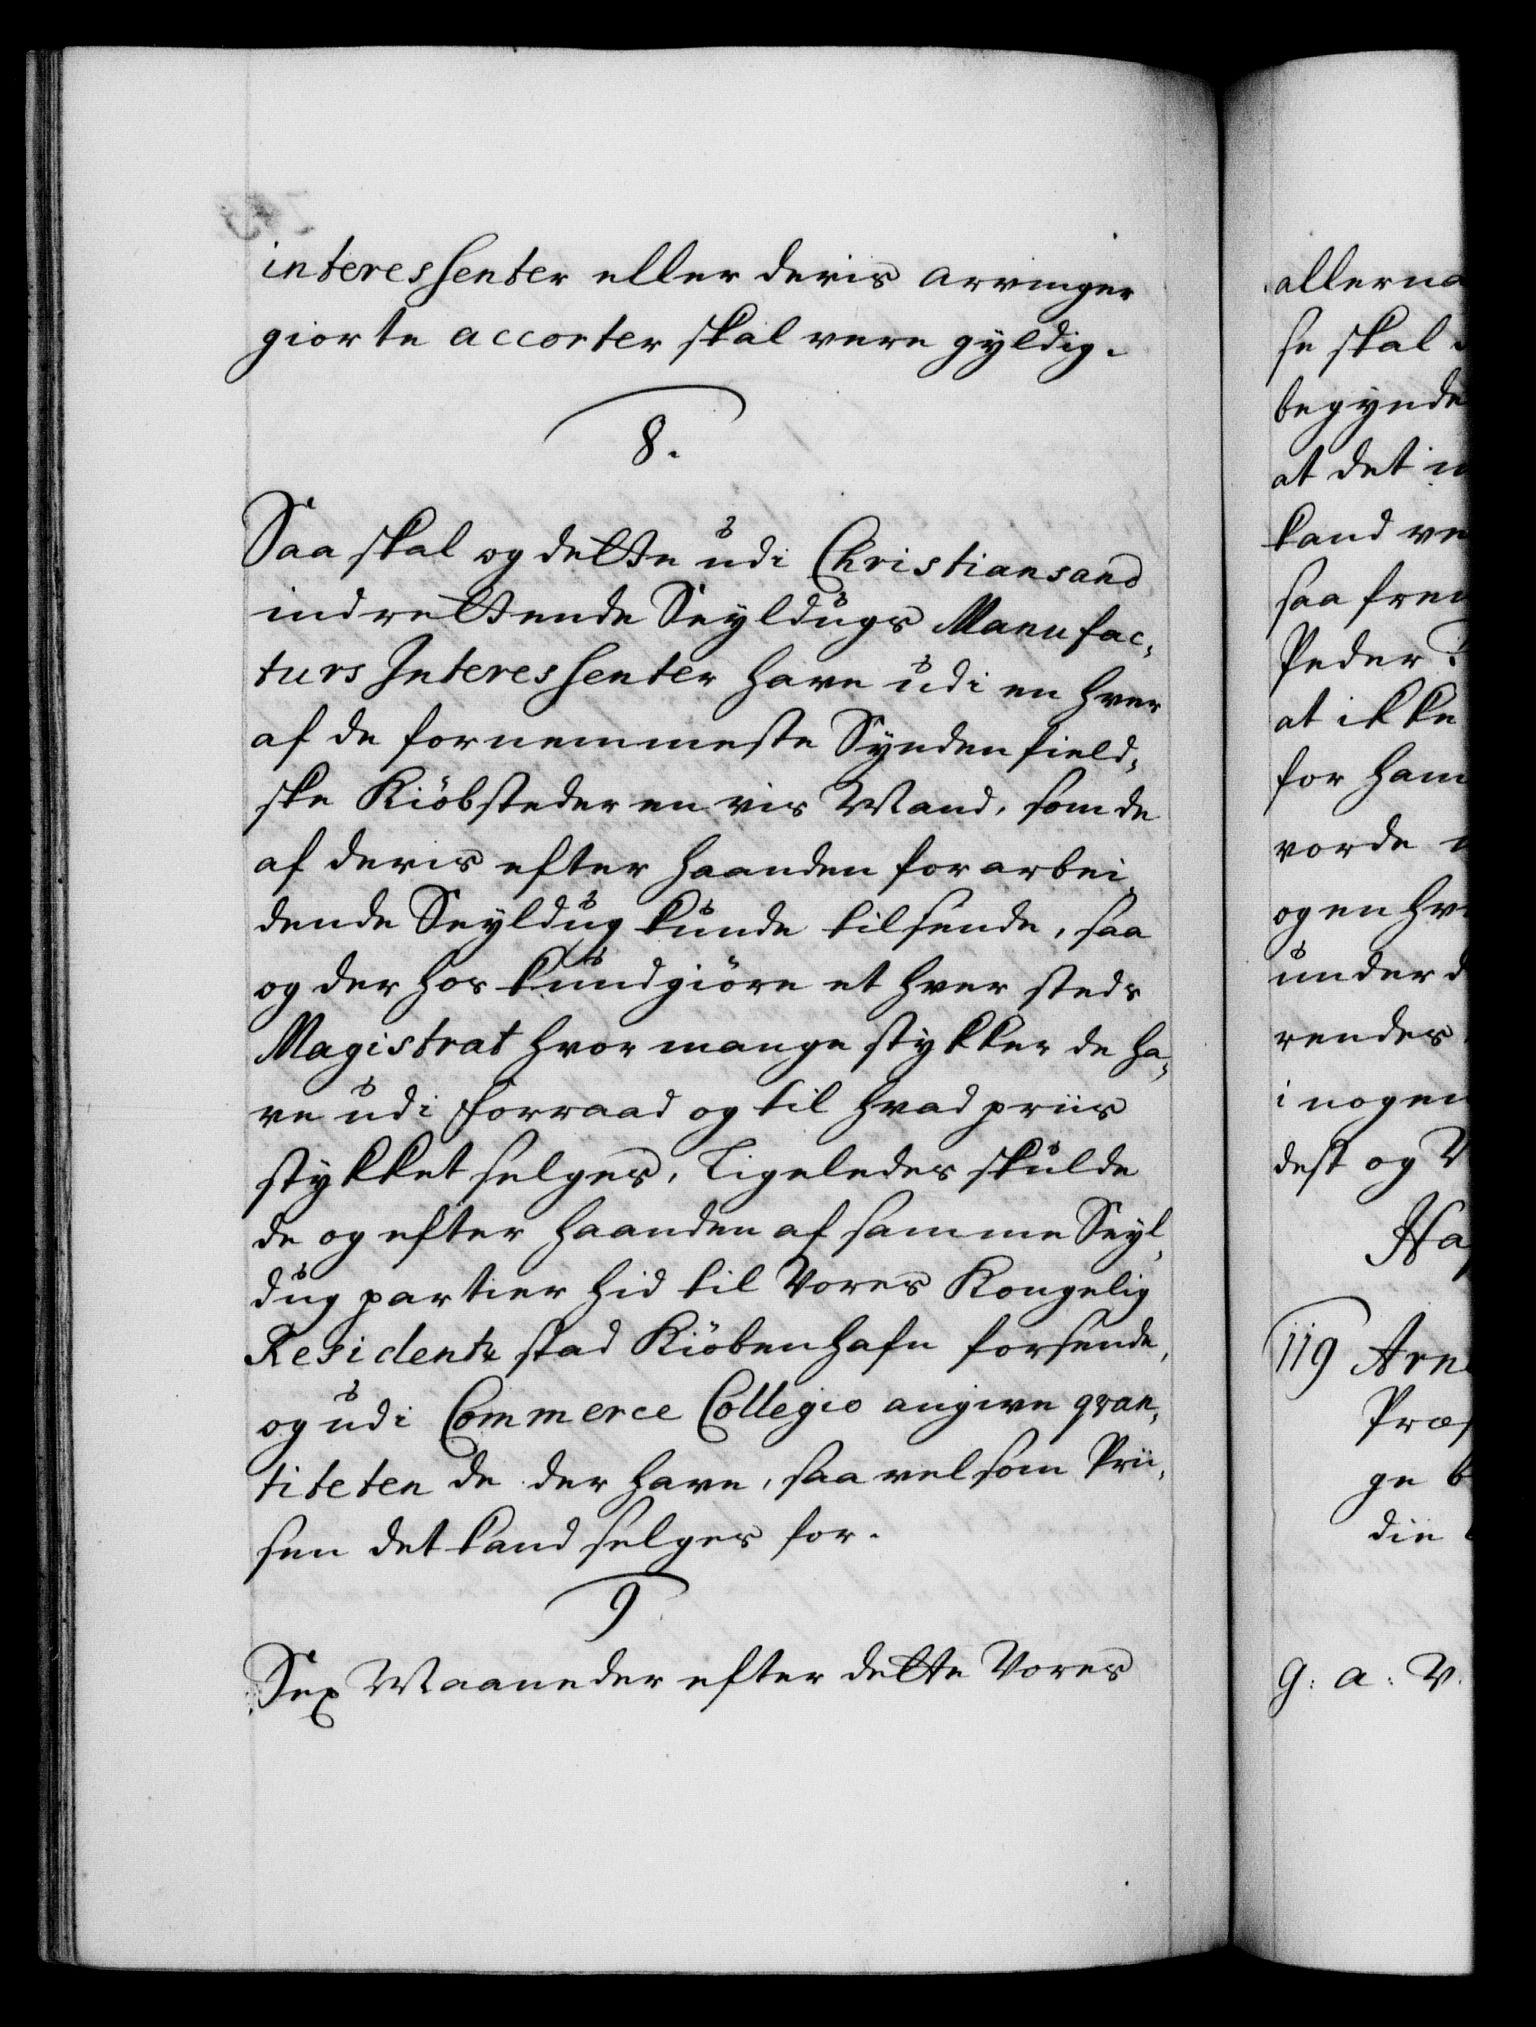 interessenter eller deris arvinger
giorte accorter skal være gyldig.
8.
Saa skal og dette udi Christiansand
indrettende Seyldugs Manufac,
turs Interessenter have udi en hver
af de fornemmeste Syndenfield,
ske Kiöbsteder en vis Mand, som de
af deris efter haanden forarbei,
dende Seyldug kunde tilsende, saa
og der hos kundgiöre et hver steds
Magistrat hvor mange stykker de ha,
ve udi Forraad og til hvad priis
stykket selges, Ligeledes skulde
de og efter haanden af samme Seyl,
dug partier hid til Vores Kongelig
Residentz stad Kiöbenhafn forsende,
og udi Commerce Collegio angive qvan,
titeten de der have, saa vel som Prii,
sen det kand selges for.
9
Sex Maaneder efter dette Vores
allerna
se skal
begynde
at det
kand ve
saa frem
Peder
at ikke
for ham
vorde
og en hv
under d
rendes
i nogen
dest og V
Ha
119 Arne
Præs
ge b
die
G: a: V.